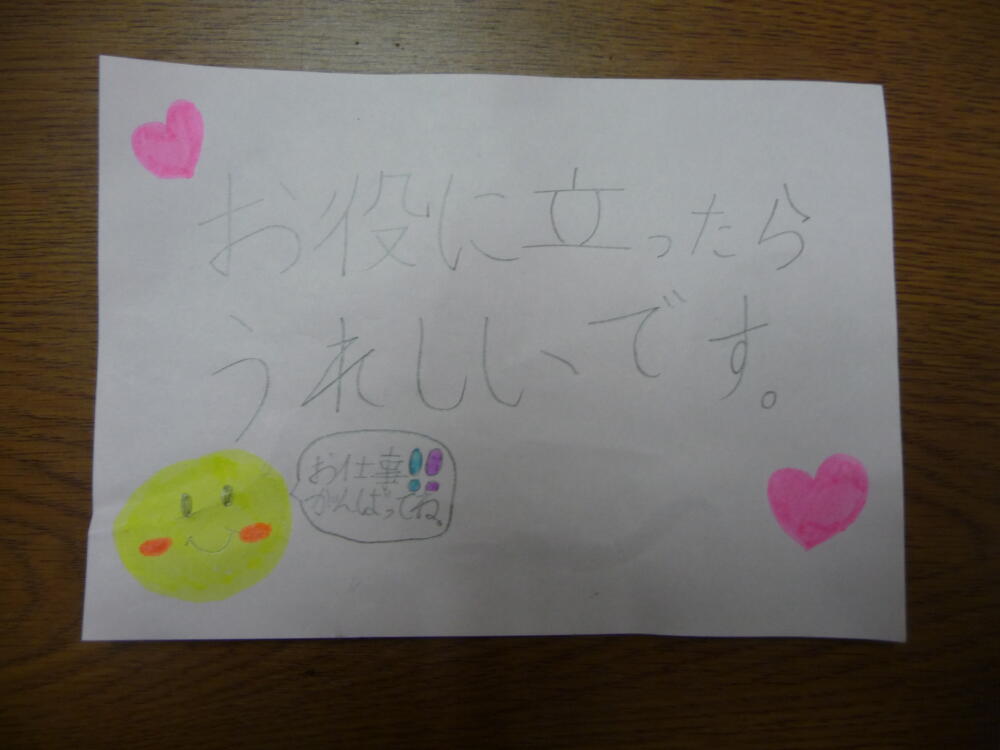 お役に立ったら
うれしいです。
お仕事!!
がんばってね。